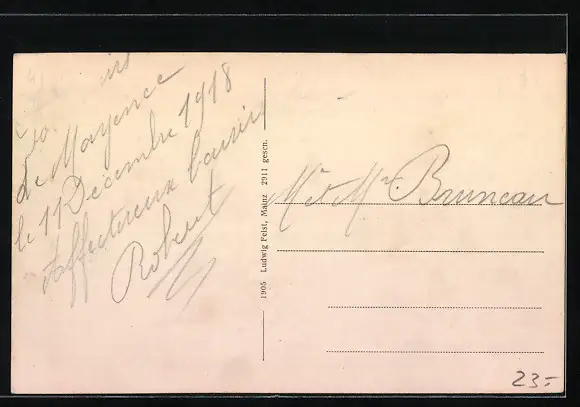 de Mayence
le 11 Décembre 1918
affectueux baisers
Robert
1905 Ludwig Feist, Mainz 2911 gesch.
Mr et Mme Bruneau
23=